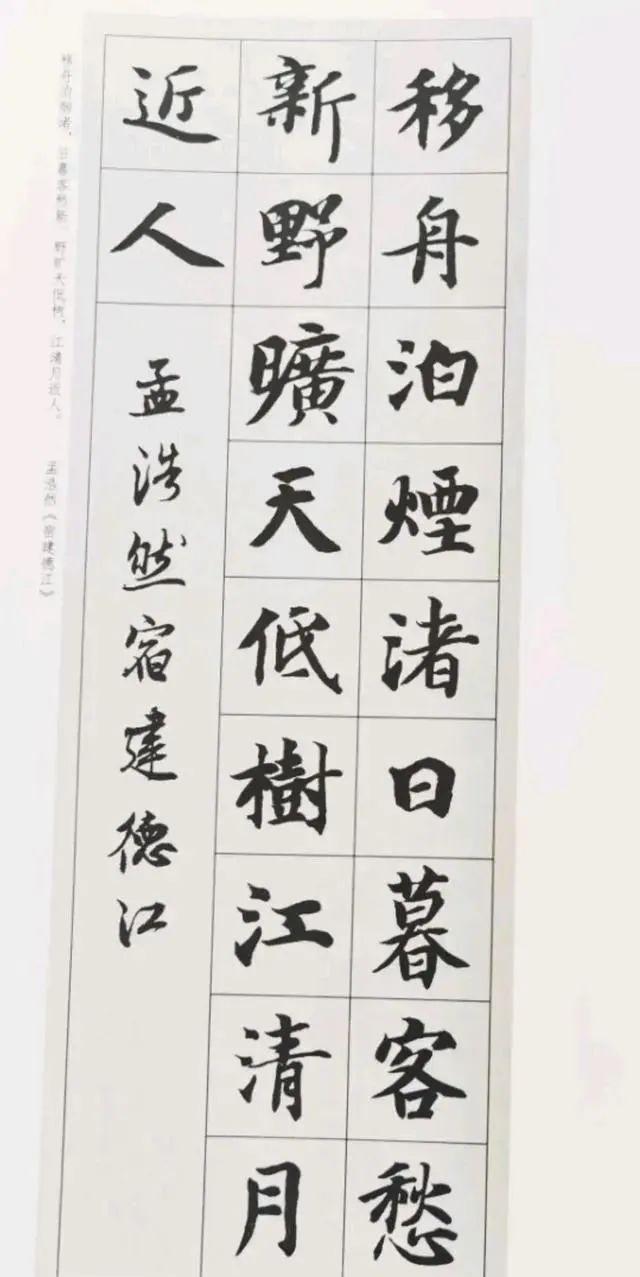 移舟泊煙渚日暮客愁
新野曠天低樹江清月
近人
孟浩然宿建德江
移舟泊烟渚，日暮客愁新。野旷天低树，江清月近人。
孟浩然《宿建德江》